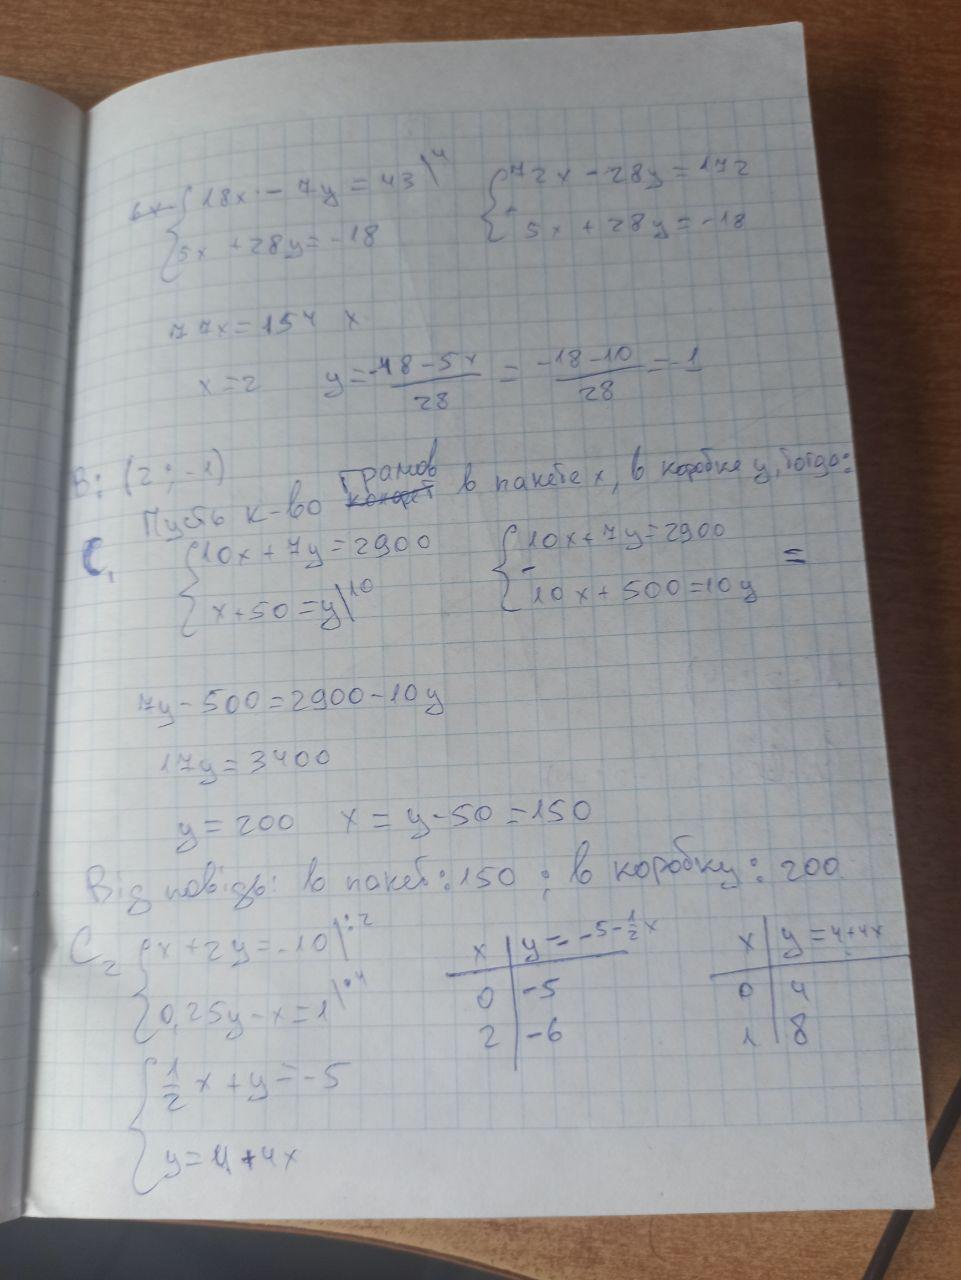 {18x - 7y = 43 |4
{5x + 28y = -18
{72x - 28y = 172
{5x + 28y = -18
77x = 154 x
x = 2 y = -18-5x/28 = -18-10/28 = -1
В: (2; -1)
Пусть к-во грамов в пакете x, в коробке y, тогда:
C1 {10x + 7y = 2900
{x + 50 = y |10
{10x + 7y = 2900
- =
{10x + 500 = 10y
7y - 500 = 2900 - 10y
17y = 3400
y = 200 x = y - 50 = 150
Відповідь: в пакет: 150 ; в коробку: 200
C2 {x + 2y = -10 |:2
{0,25y - x = 1 |·4
x | y = -5 - 1/2x
0 | -5
2 | -6
x | y = 4+4x
0 | 4
1 | 8
{1/2 x + y = -5
{y = 4 + 4x